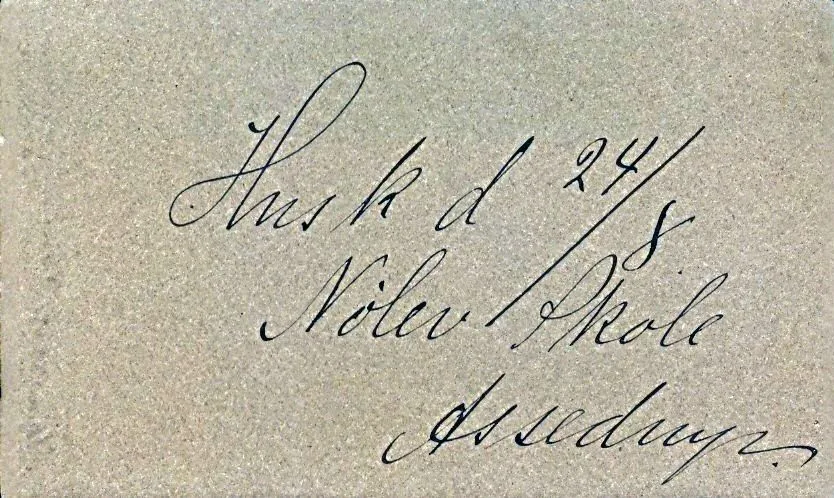 Husk d 24/8
Nølev Skole
Assedrup.